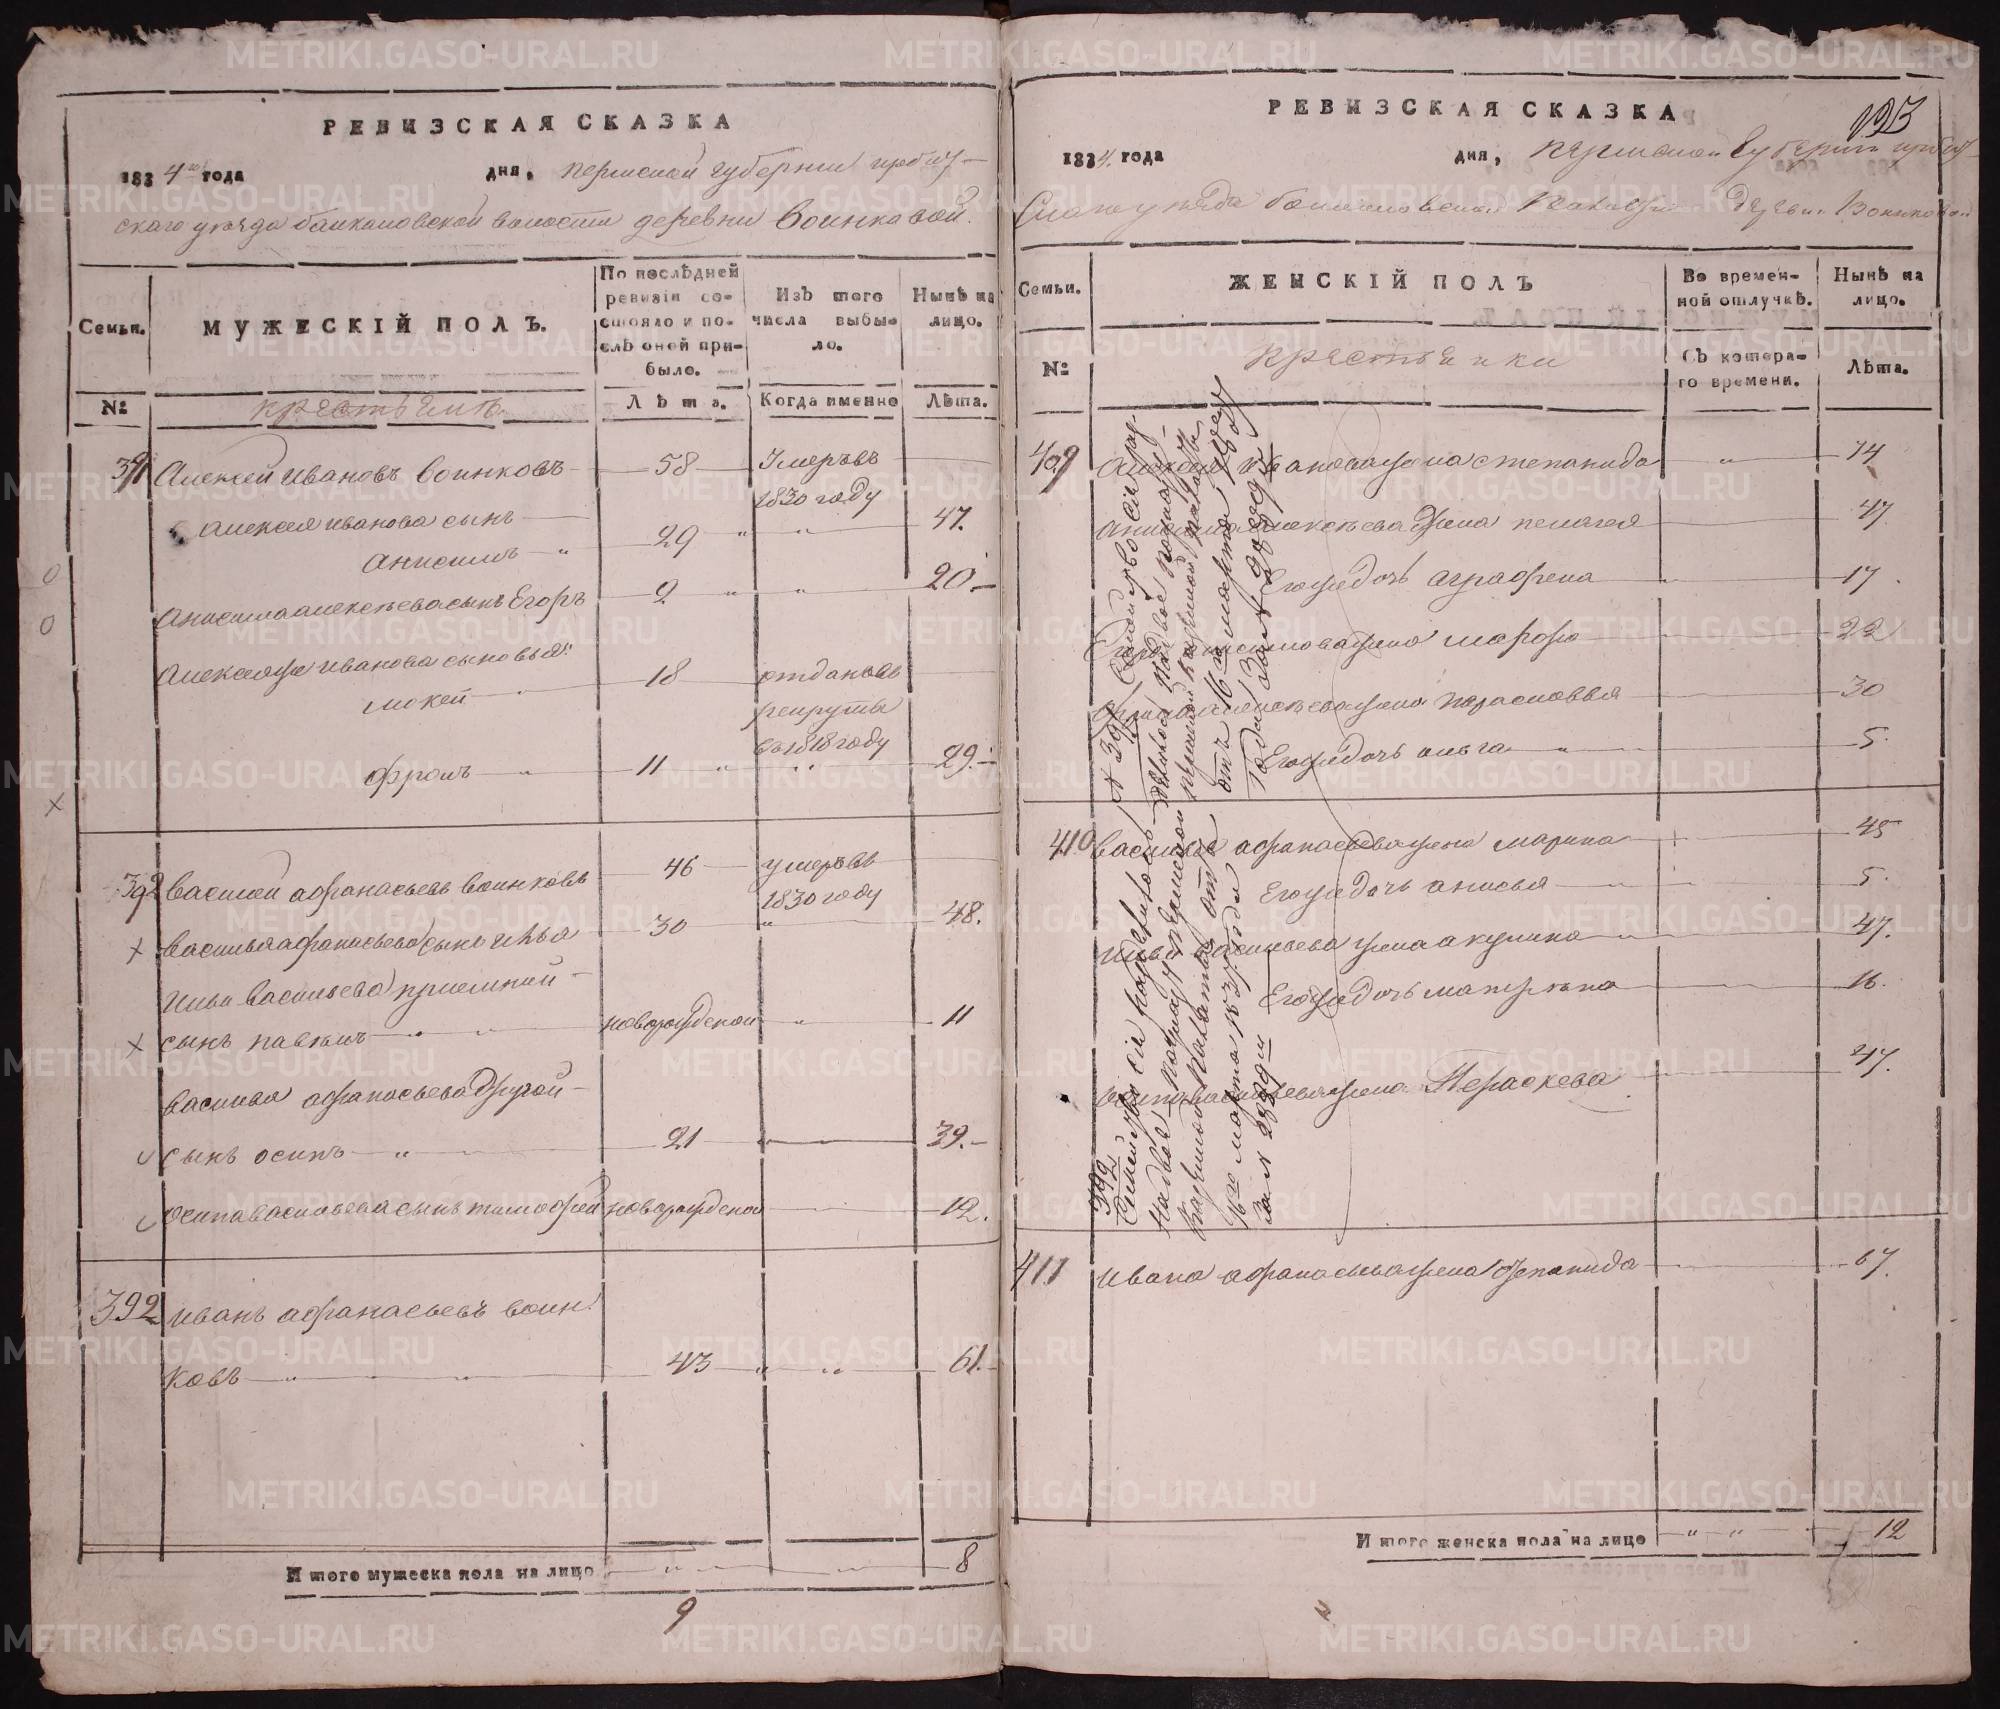 РЕВИЗСКАЯ СКАЗКА
1834го года дня, пермской губернии ирбит-
скаго уезда баикаловской волости деревни Воинковой.
Семьи.
МУЖЕСКІЙ ПОЛЪ.
По послѣдней ревизіи состояло и послѣ оной прибыло.
Изъ того числа выбыло.
Нынѣ на лицо.
№ крестьянъ Лѣта. Когда именно Лѣта.
391 Алексей Ивановъ Воинковъ 58 Умеръ въ 1830 году
Алексея Иванова сынъ
Анисимъ 29 47.
Анисима алексеева сынъ Егоръ 2 20
Алексея же Иванова сыновья:
мокей 18 отдан въ рекруты въ 1818 году
фролъ 11 29.
392 Василей афанасьевъ воинковъ 46 умеръ въ 1830 году
Василья афанасьева сынъ илья 30 48.
Ильи Васильева приемный
сынъ павелъ новорожденой 11
Василья афанасьева другой
сынъ осипъ 21 39.
осипа васильева сынъ тимофей новорожденой 12.
392 иванъ афанасьевъ воин
ковъ 43 61.
И того мужеска пола на лицо 8
9
РЕВИЗСКАЯ СКАЗКА
193
1834. года дня, пермской Губернии ирбит-
Скаго уезда деревни Воинковой
Семьи.
ЖЕНСКІЙ ПОЛЪ
Во временной отлучкѣ.
Нынѣ на лицо.
№ крестьянки Съ котораго времени. Лѣта.
409 Алексея Иванова жена степанида 74
Анисима алексеева жена пелагея 47
Его же дочь аграфена 17.
Егора анисимова жена марфа 22
Фрола алексеева жена парасковья 30
Его же дочь ольга 5.
410 василья афанасьева жена марина 45
Его же дочь анисья 5.
Ильи васильева жена акулина 47.
Его же дочь матрена 16.
осипа васильева жена Пераскева 47.
411 Ивана афанасьева жена степанида 67.
И того женска пола на лицо 12
№ 391 Семейство сие
отъ 16го марта 1837
Года за № 2839м
392 Семейство сие
16го марта 1837 года
За № 2839м
METRIKI.GASO-URAL.RU